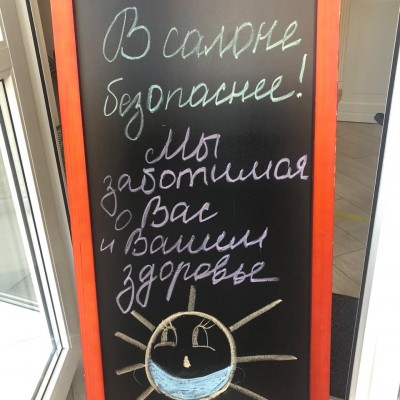 В салоне
безопаснее!
Мы
заботимся
о Вас
и Вашем
здоровье